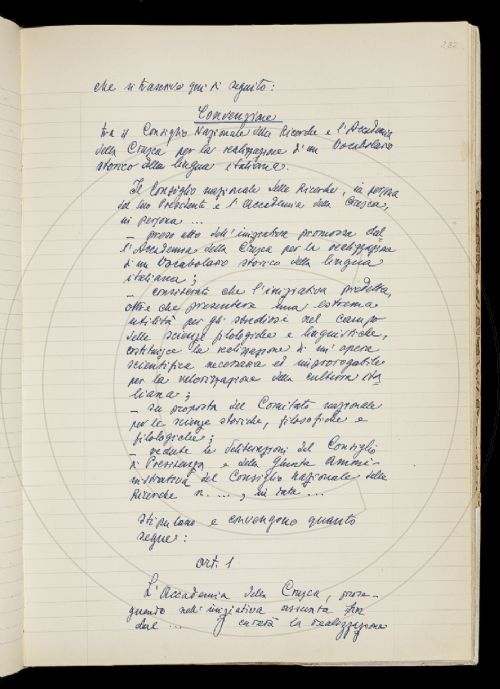 282
che si trascrive qui di seguito:
Convenzione
tra il Consiglio Nazionale delle Ricerche e l'Accademia
della Crusca per la realizzazione di un Vocabolario
storico della lingua italiana.
Il Consiglio nazionale delle Ricerche, in persona
del suo Presidente e l'Accademia della Crusca,
in persona ...
– preso atto dell'iniziativa promossa dal
l'Accademia della Crusca per la realizzazione
di un Vocabolario storico della lingua
italiana;
– considerato che l'iniziativa predetta,
oltre che presentare una estrema
utilità per gli studiosi nel campo
delle scienze filologiche e linguistiche,
costituisce la realizzazione di un'opera
scientifica necessaria ed improrogabile
per la valorizzazione della cultura ita-
liana;
– su proposta del Comitato nazionale
per le scienze storiche, filosofiche e
filologiche;
– vedute le deliberazioni del Consiglio
di Presidenza e della Giunta ammi-
nistrativa del Consiglio nazionale delle
Ricerche n. ...., in data ...
stipulano e convengono quanto
segue:
Art. 1
L'Accademia della Crusca, prose-
guendo nell'iniziativa assunta fin
dal ... curerà la realizzazione